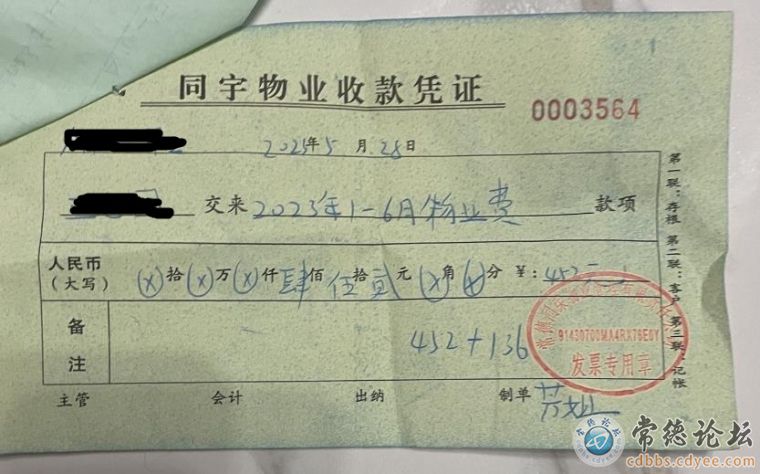 同宇物业收款凭证
0003564
2023年5月28日
交来2023年1-6月物业费款项
人民币（大写）ⓧ拾ⓧ万ⓧ仟肆佰伍拾贰元ⓧ角ⓧ分¥：452元
备注 452+136
91430700MA4RX76E0Y
发票专用章
主管 会计 出纳 制单
第一联：存根 第二联：客户 第三联：记帐
常德论坛
cdbbs.cdyee.com